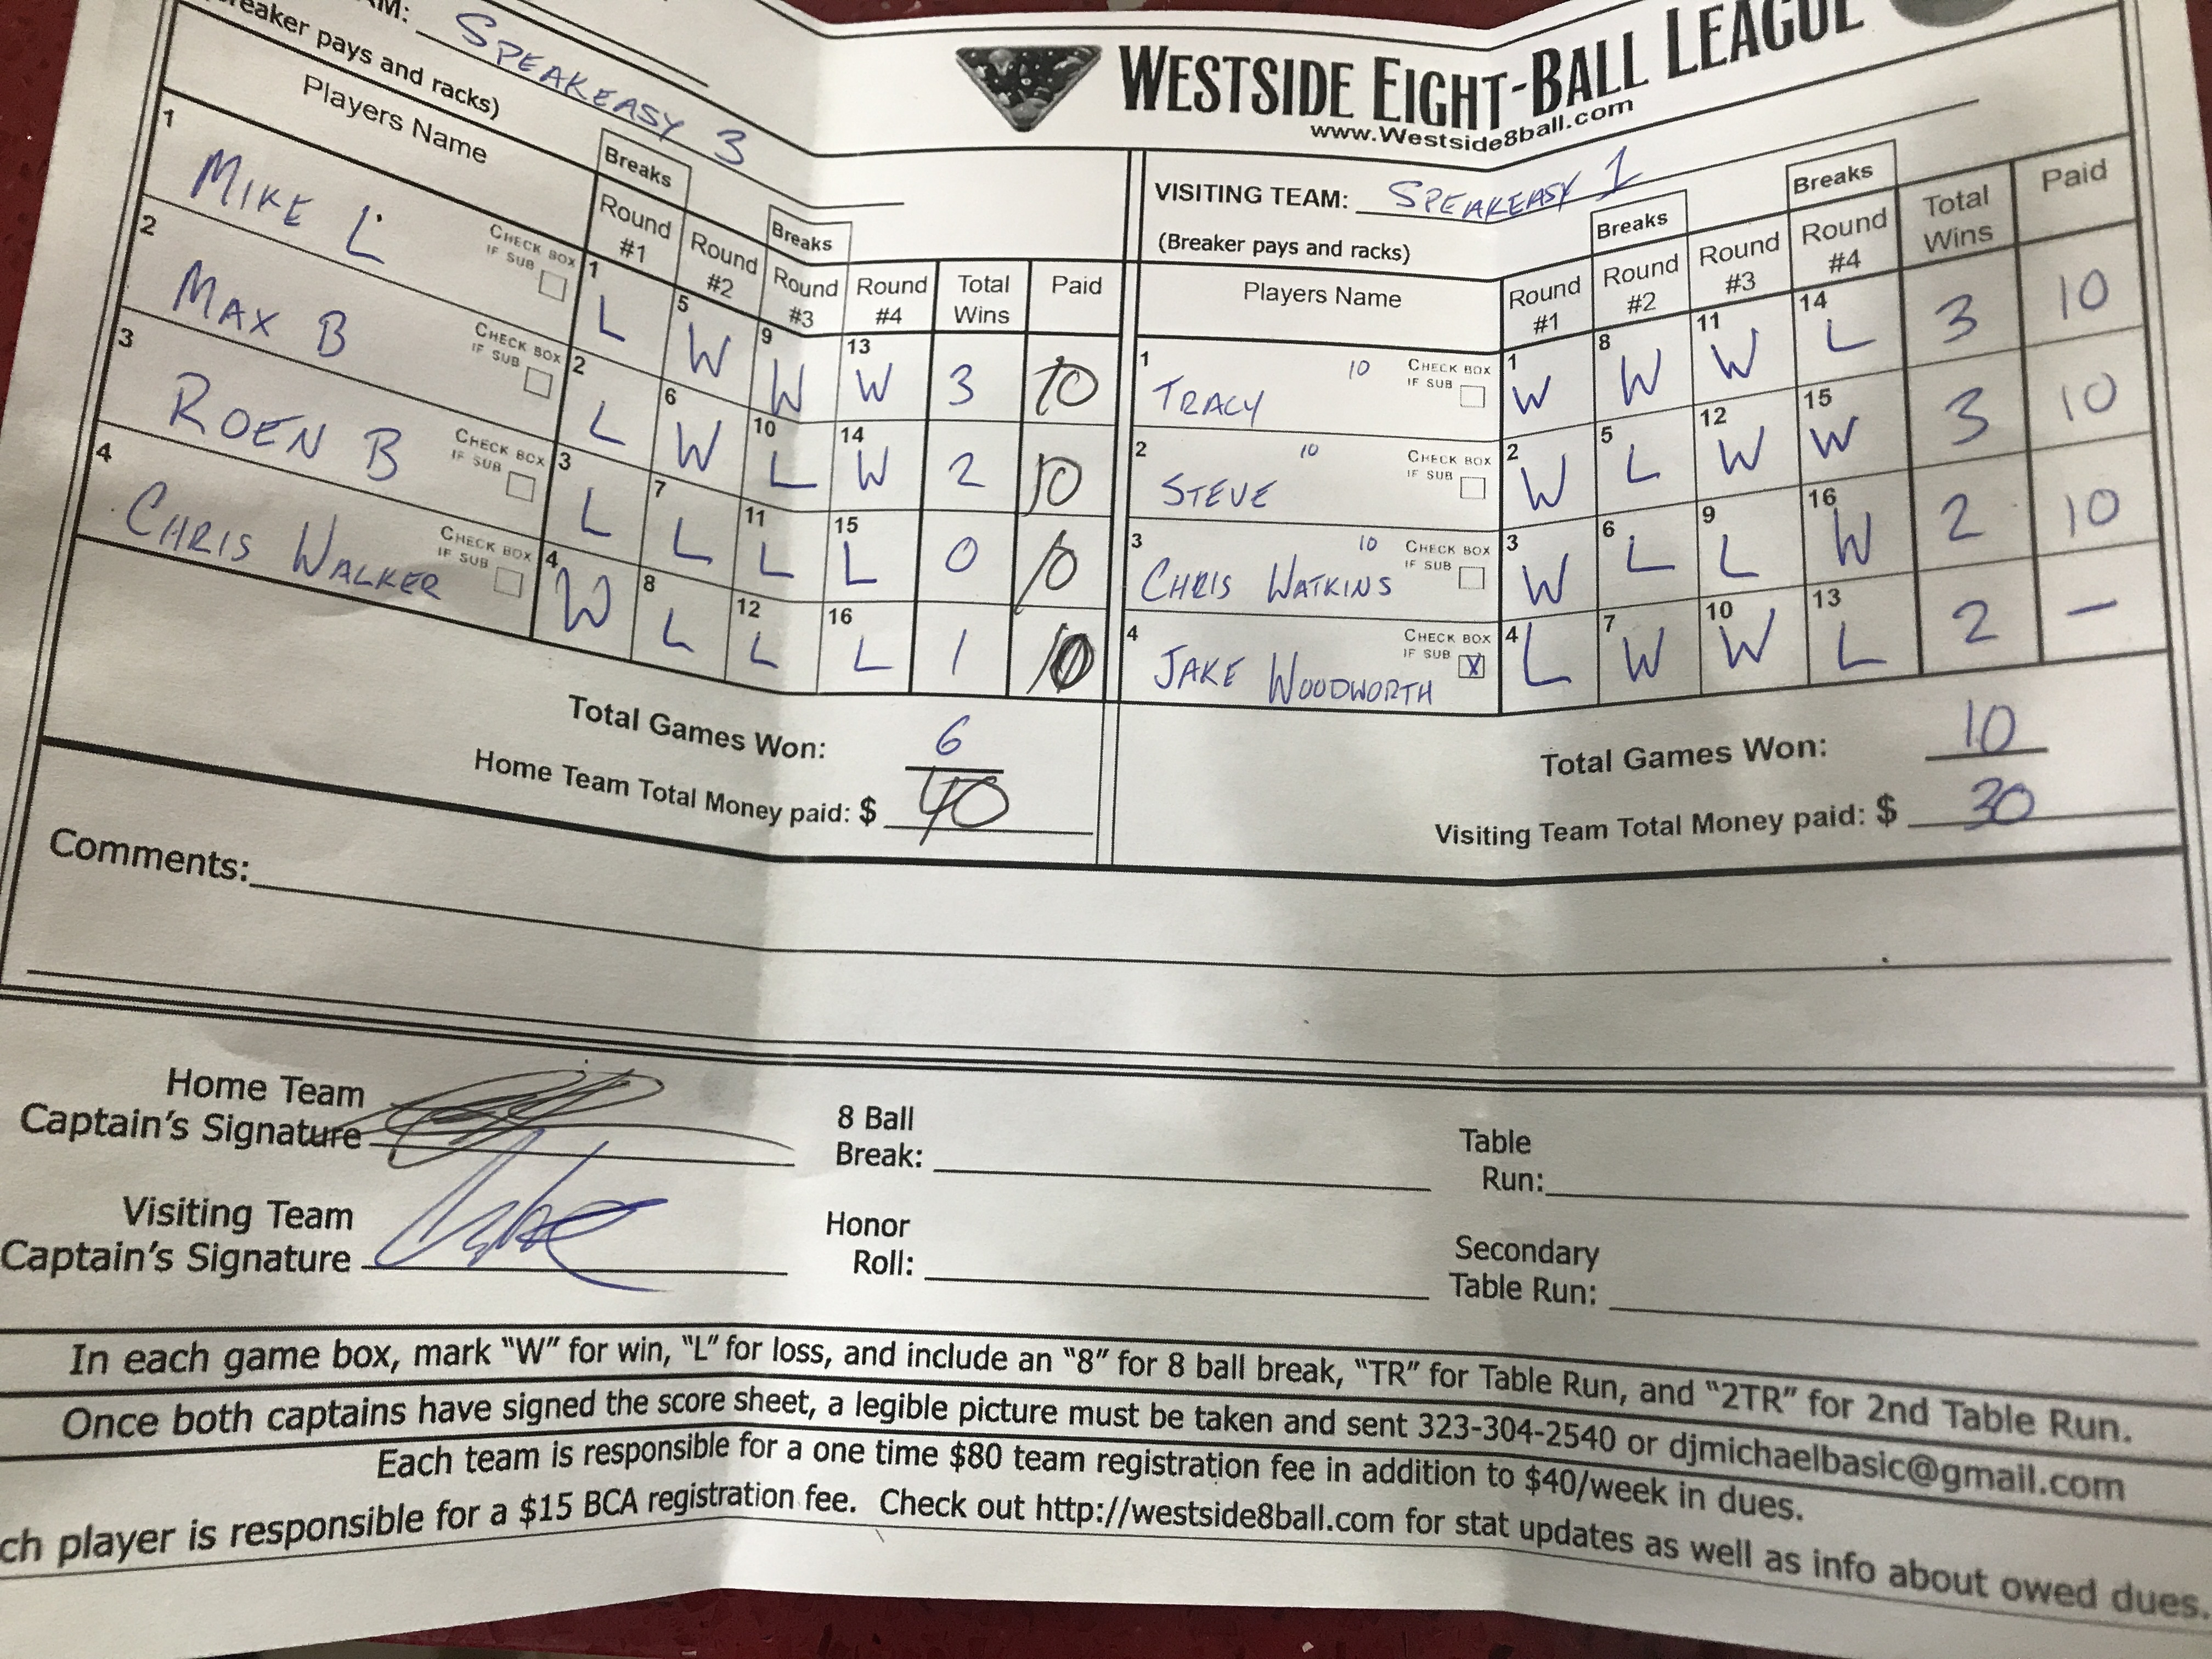 AM: SPEAKEASY 3
WESTSIDE EIGHT-BALL LEAGUE
www.Westside8ball.com
(Breaker pays and racks)
Players Name
Breaks
Round #1
Round #2
Breaks
Round #3
Round #4
Total Wins
Paid
1 MIKE L CHECK BOX IF SUB 1 L 5 W 9 W 13 W 3 10
2 MAX B CHECK BOX IF SUB 2 L 6 W 10 L 14 W 2 10
3 ROEN B CHECK BOX IF SUB 3 L 7 L 11 L 15 L 0 10
4 CHRIS WALKER CHECK BOX IF SUB 4 W 8 L 12 L 16 L 1 10
Total Games Won: 6
Home Team Total Money paid: $ 40
VISITING TEAM: SPEAKEASY 1
(Breaker pays and racks)
Players Name
Round #1
Breaks
Round #2
Round #3
Breaks
Round #4
Total Wins
Paid
1 TRACY 10 CHECK BOX IF SUB 1 W 8 W 11 W 14 L 3 10
2 STEVE 10 CHECK BOX IF SUB 2 W 5 L 12 W 15 W 3 10
3 CHRIS WATKINS 10 CHECK BOX IF SUB 3 W 6 L 9 L 16 W 2 10
4 JAKE WOODWORTH CHECK BOX IF SUB X 4 L 7 W 10 W 13 L 2 —
Total Games Won: 10
Visiting Team Total Money paid: $ 30
Comments:
Home Team
Captain's Signature
8 Ball
Break:
Table
Run:
Visiting Team
Captain's Signature
Honor
Roll:
Secondary
Table Run:
In each game box, mark "W" for win, "L" for loss, and include an "8" for 8 ball break, "TR" for Table Run, and "2TR" for 2nd Table Run.
Once both captains have signed the score sheet, a legible picture must be taken and sent 323-304-2540 or djmichaelbasic@gmail.com
Each team is responsible for a one time $80 team registration fee in addition to $40/week in dues.
ch player is responsible for a $15 BCA registration fee. Check out http://westside8ball.com for stat updates as well as info about owed dues.